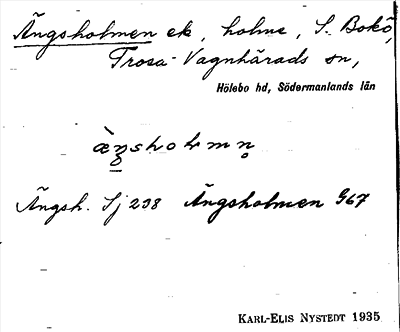 Ängsholmen ek, holme, S. Bokö,
Trosa-Vagnhärads sn,
Hölebo hd, Södermanlands län
æ̀ŋsholmn̥
Ängsh. Sj 238 Ängsholmen G67
KARL-ELIS NYSTEDT 1935